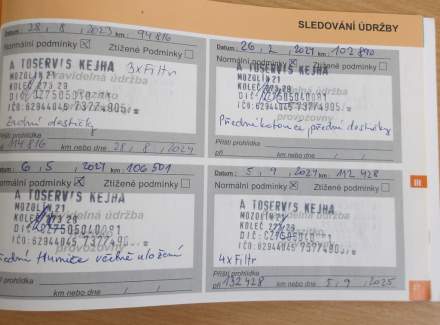 SLEDOVÁNÍ ÚDRŽBY
Datum 28, 8, 2023 km 94816
Normální podmínky Ztížené Podmínky
A TOSERVIS KEJHA
3xFiltr
MOZOLÍN 21
KOLEČ 273 29
DIČ:CZ7505040091
IČO:62944045 73774905
Zadní destičky
Příští prohlídka
114816 km nebo dne 28, 8, 2024
Datum 26, 2, 2024 km 102890
Normální podmínky Ztížené Podmínky
A TOSERVIS KEJHA
MOZOLÍN 21
KOLEČ 273 29
DIČ:CZ7505040091
IČO:62944045 73774905
provozovny
Přední kotouce, přední destičky
Příští prohlídka
při km nebo dne
6, 5, 2024 km 106501
Normální podmínky Ztížené Podmínky
A TOSERVIS KEJHA
MOZOLÍN 21
KOLEČ 273 29
DIČ:CZ7505040091
IČO:62944045 73774905
přední tlumiče včetně uložení
km nebo dne
Datum 5, 9, 2024 km 112428
Normální podmínky Ztížené Podmínky
A TOSERVIS KEJHA
MOZOLÍN 21
KOLEČ 273 29
DIČ:CZ7505040091
IČO:62944045 73774905
4xFiltr
Příští prohlídka
při 132428 km nebo dne 5, 9, 2025